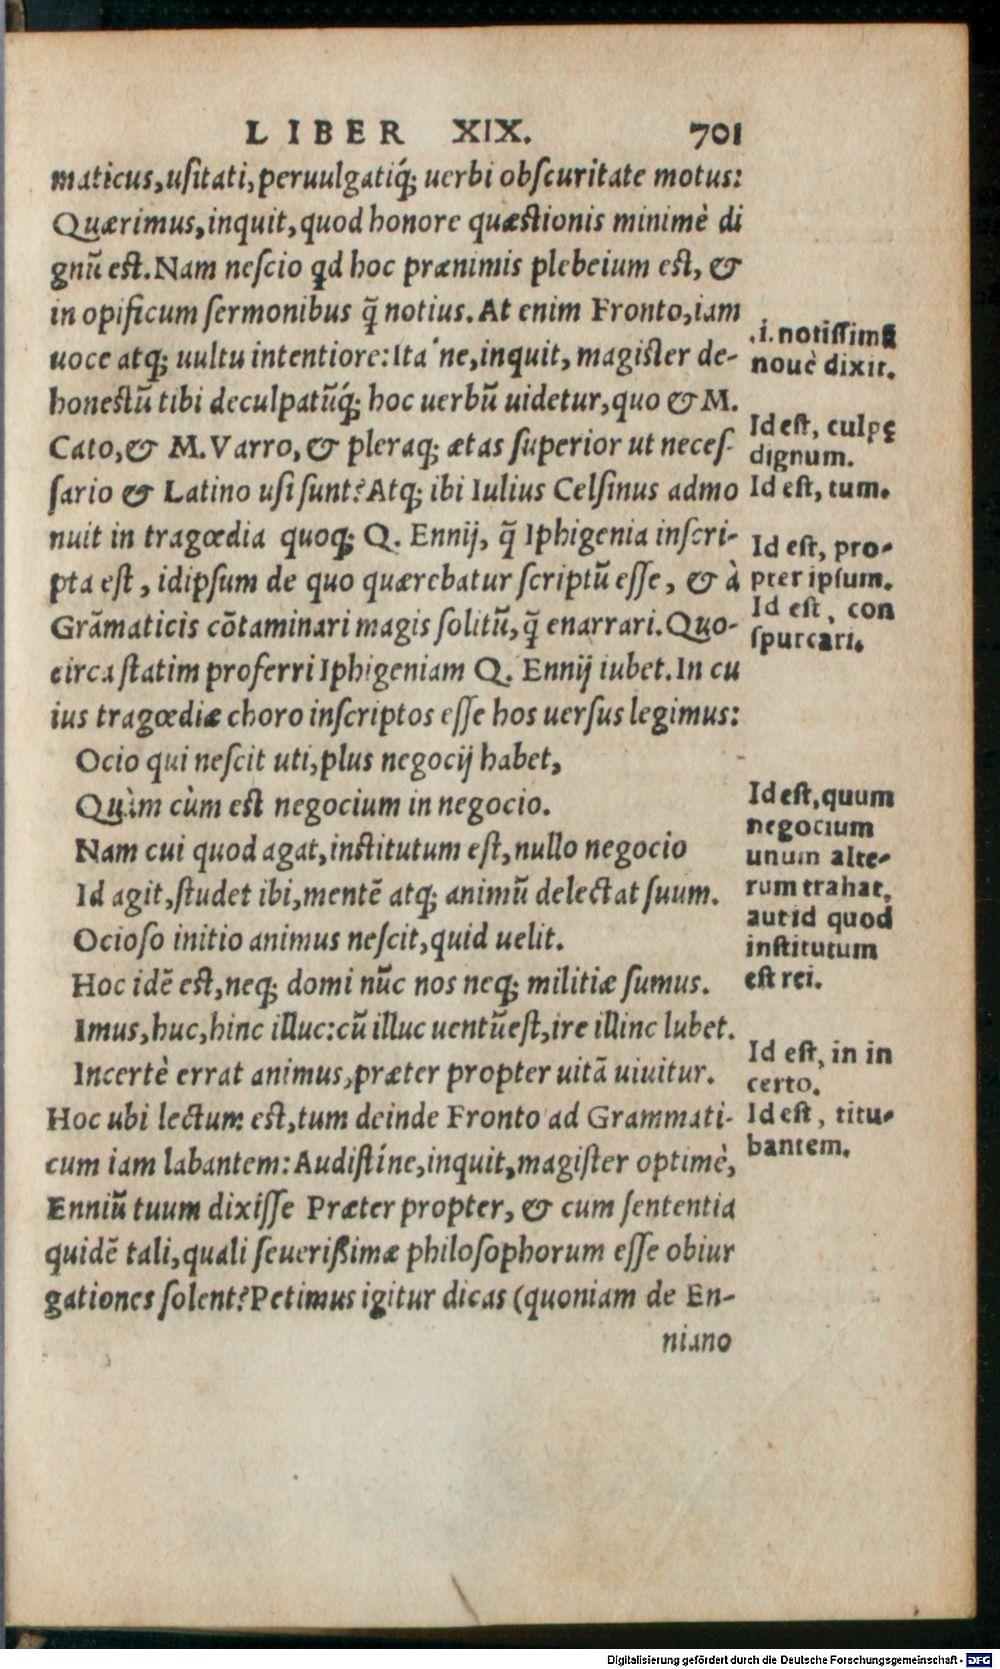 LIBER XIX. 701
maticus, usitati, peruulgatiq́; uerbi obscuritate motus:
Quærimus, inquit, quod honore quæstionis minimè di
gnũ est. Nam nescio qd hoc prænimis plebeium est, &
in opificum sermonibus q̃ notius. At enim Fronto, iam
uoce atq; uultu intentiore: Ita'ne, inquit, magister de-
honestũ tibi deculpatũq́; hoc uerbũ uidetur, quo & M.
Cato, & M. Varro, & pleraq; ætas superior ut neces-
sario & Latino usi sunt? Atq; ibi Iulius Celsinus admo
nuit in tragœdia quoq; Q. Ennij, q̃ Iphigenia inscri-
pta est, idipsum de quo quærebatur scriptũ esse, & à
Grãmaticis cõtaminari magis solitũ, q̃ enarrari. Quo-
circa statim proferri Iphigeniam Q. Ennij iubet. In cu
ius tragœdiæ choro inscriptos esse hos uersus legimus:
Ocio qui nescit uti, plus negocij habet,
Quàm cùm est negocium in negocio.
Nam cui quod agat, institutum est, nullo negocio
Id agit, studet ibi, mentẽ atq; animũ delectat suum.
Ocioso initio animus nescit, quid uelit.
Hoc idẽ est, neq; domi nũc nos neq; militiæ sumus.
Imus, huc, hinc illuc: cũ illuc uentũ est, ire illinc lubet.
Incertè errat animus, præter propter uitã uiuitur.
Hoc ubi lectum est, tum deinde Fronto ad Grammati-
cum iam labantem: Audistíne, inquit, magister optimè,
Enniũ tuum dixisse Præter propter, & cum sententia
quidẽ tali, quali seuerißimæ philosophorum esse obiur
gationes solent? Petimus igitur dicas (quoniam de En-
niano
.i. notissimũ
nouè dixit.
Id est, culpę
dignum.
Id est, tum.
Id est, pro-
pter ipsum.
Id est, con
spurcari.
Id est, quum
negocium
unum alte-
rum trahat,
aut id quod
institutum
est rei.
Id est, in in
certo.
Id est, titu-
bantem.
Digitalisierung gefördert durch die Deutsche Forschungsgemeinschaft - DFG